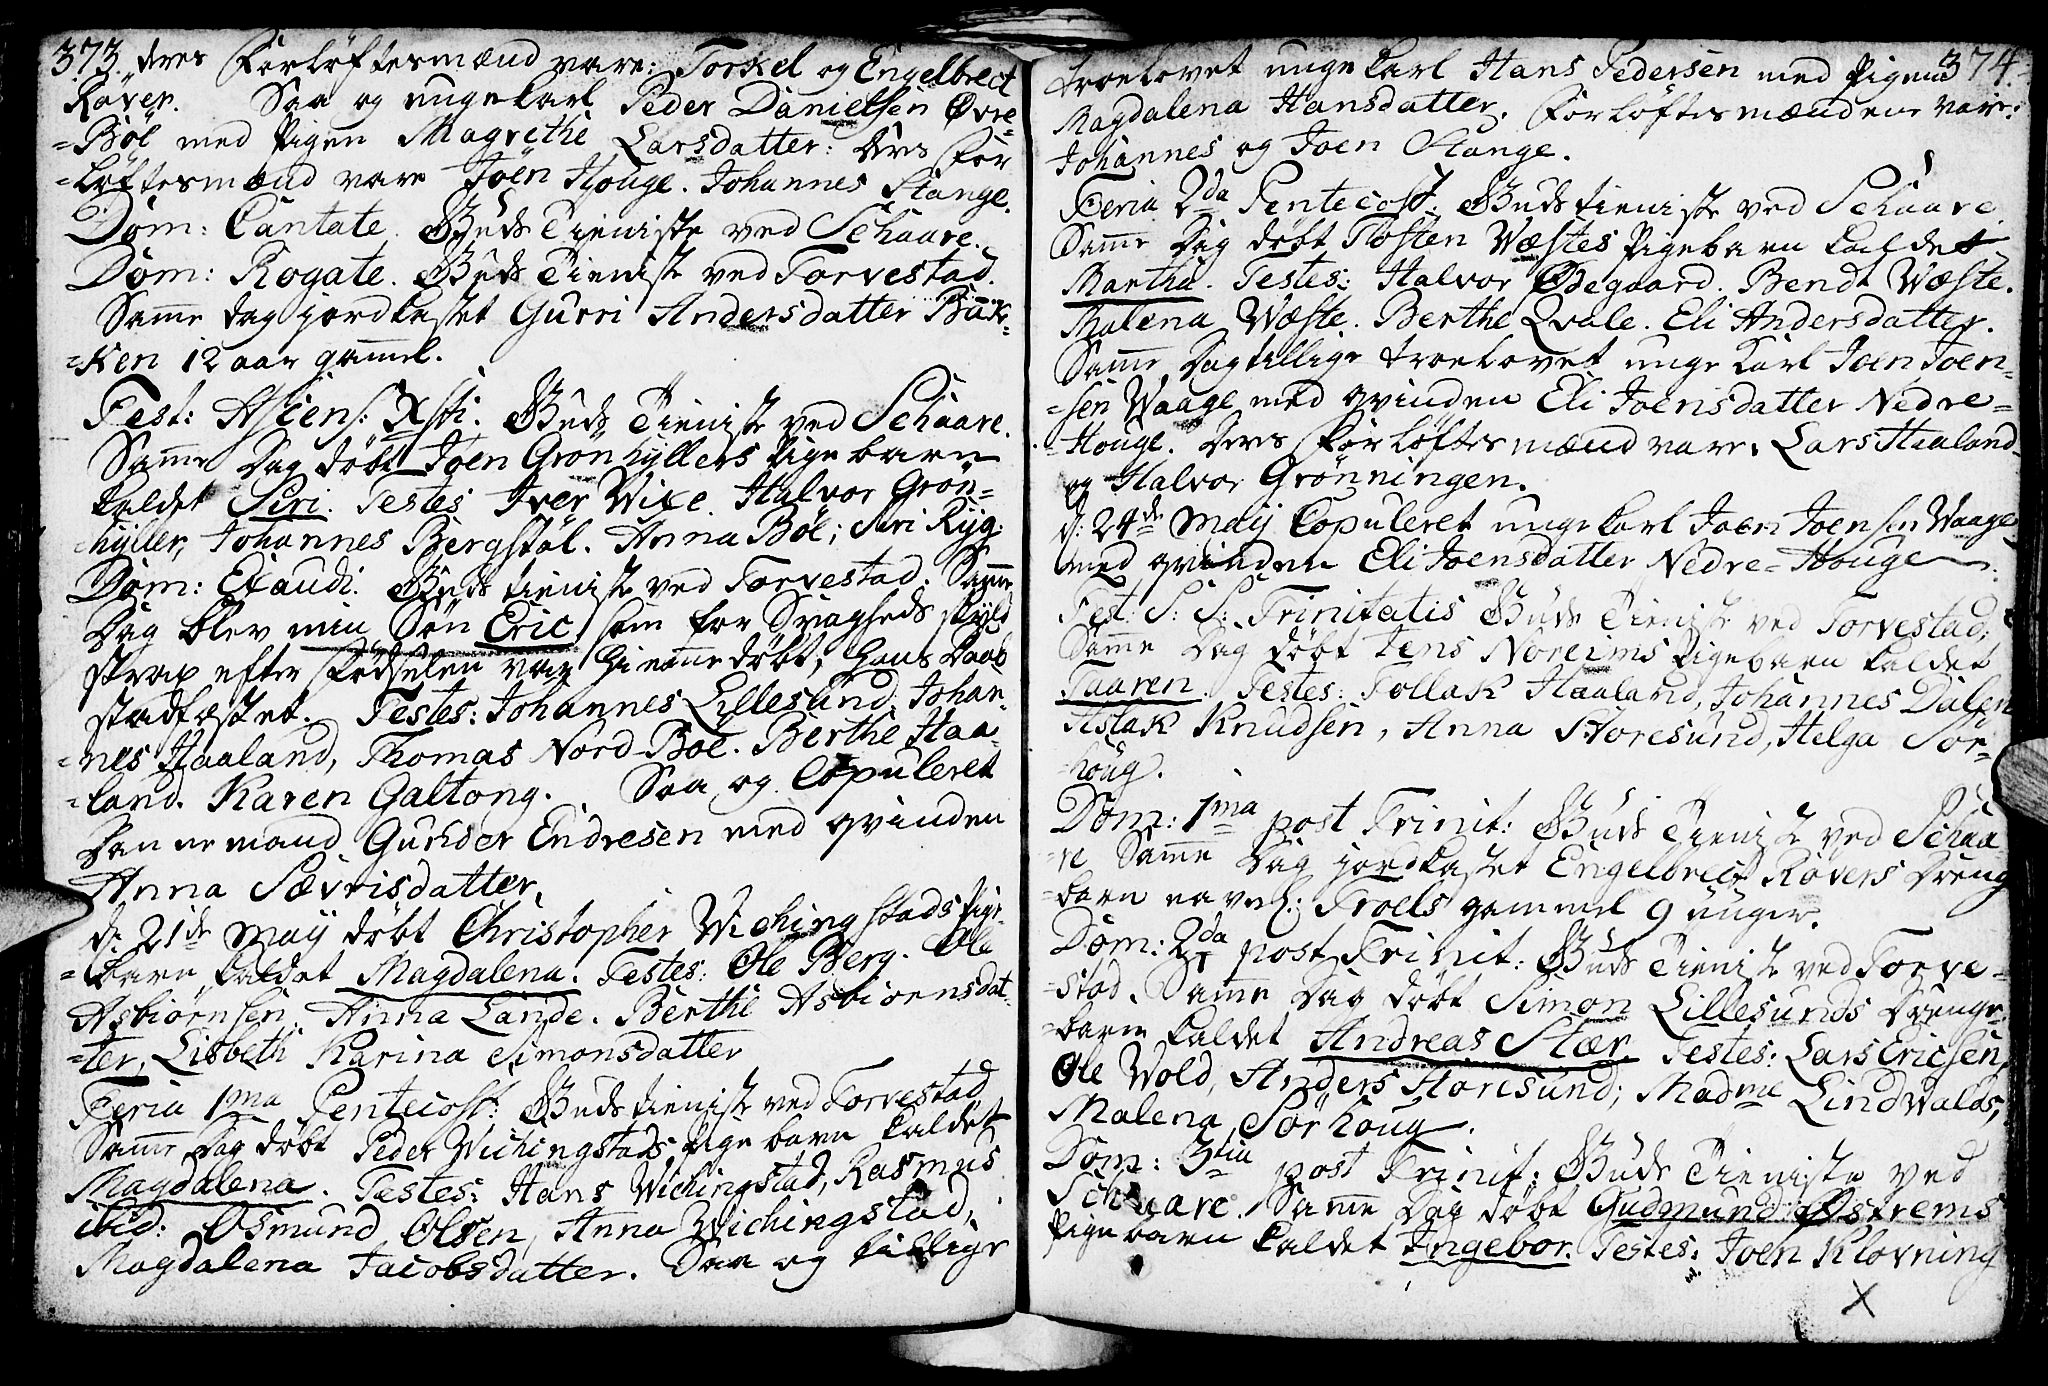 373. deres Forløftesmænd vare: Torkel og Engelbrect
Røver. Saa og ungekarl Peder Danielsen Øvre-
-Böe med Pigen Magrethe Larsdatter: deres For
-løftesmænd vare Joen Houge. Johannes Stange.
Dom: Cantate. Guds Tieniste ved Schaare.
Dom: Rogate. Guds Tieniste ved Torvestad.
Samme dag jordkastet Gurri Andersdatter Bak-
-ken 12 aar gammel.
Fest: Ascens: Xsti. Guds Tieniste ved Schaare.
Samme Dag döbt Joen Grönhyllers Pigebarn
kaldet Siri. Testes Iver Wixe. Halvor Grön-
hyller, Johannes Bergstöl. Anna Böe; Siri Ryg.
Dom: Exaudi. Guds tieniste ved Torvestad. Samme
Dag blev min Sön Eric, som for Svagheds skyld
strax efter Födselen var hiemme döbt, hans Daab
stadfæstet. Testes: Johannes Lillesund, Johan-
-nes Haaland, Thomas Nord-Böe. Berthe Haa-
-land. Karen Galtong. Saa og Copuleret
Dannemand Gunder Endresen med qvinden
Anna Sævrisdatter.
d: 21de Maij döbt Christopher Wichingstads Pige-
-barn kaldet Magdalena. Testes: Ole Berg. Ole
Asbiörnsen. Anna Lande. Berthe Asbiörnsdat-
-ter, Lisbeth Karina Simonsdatter
Feria 1ma Pentecost: Guds tieniste ved Torvestad
Samme Dag döbt Peder Wichingstads Pigebarn kaldet
Magdalena. Testes: Hans Wichingstad, Rasmus
ibid: Osmund Olsen, Anna Wichingstad,
Magdalena Jacobsdatter. Saa og tillige
374
troelovet unge karl Hans Pedersen med Pigen
Magdalena Hansdatter. Forløftesmændene vare:
Johannes og Joen Stange.
Feria 2da Pentecost. Guds tieniste ved Schaare.
Samme Dag döbt Tosten Wæstes Pigebarn kaldet
Martha. Testes: Halvor Ødegaard. Bendt Wæste.
Malena Wæste. Berthe Qvale. Eli Andersdatter.
Samme Dag tillige troelovet unge Karl Joen Joen-
-sen Waage med qvinden Eli Joensdatter Nedre-
-Houge. Deres Forløftesmænd vare. Lars Haaland
og Halvor Grønningen.
d: 24de Maij Copuleret unge karl Joen Joensen Waage
med qvinden Eli Joensdatter Nedre-Houge
Fest: S: S: Trinitatis Guds Tieniste ved Torvestad,
Samme Dag döbt Jens Noreims Pigebarn kaldet
Taaren. Testes: Tollak Haaland, Johannes Dalen
Aslak Knudsen, Anna Storesund, Helga Sör-
-houg.
Dom: 1ma post Trinit: Guds Tieniste ved Schaa-
-re Samme Dag jordkastet Engelbrect Røvers Dreng
-barn navnl: Troels gammel 9 uuger.
Dom: 2da post Trinit: Guds Tieniste ved Torve-
-stad. Samme Dag döbt Simon Lillesunds Drenge-
-barn kaldet Andreas Stær. Testes: Lars Ericsen,
Ole Wold, Anders Storesund; Madme Lindwalds,
Malena Sörhoug.
Dom: 3tia post Trinit: Guds Tieniste ved
Schaare. Samme Dag döbt Gudmund Østrems
Pigebarn kaldet Ingebor. Testes: Joen Klovning
X